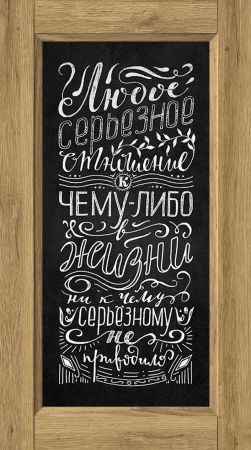 Любое
серьезное
отношение
к
ЧЕМУ-ЛИБО
в
жизни
ни к чему
серьёзному
не
приводило